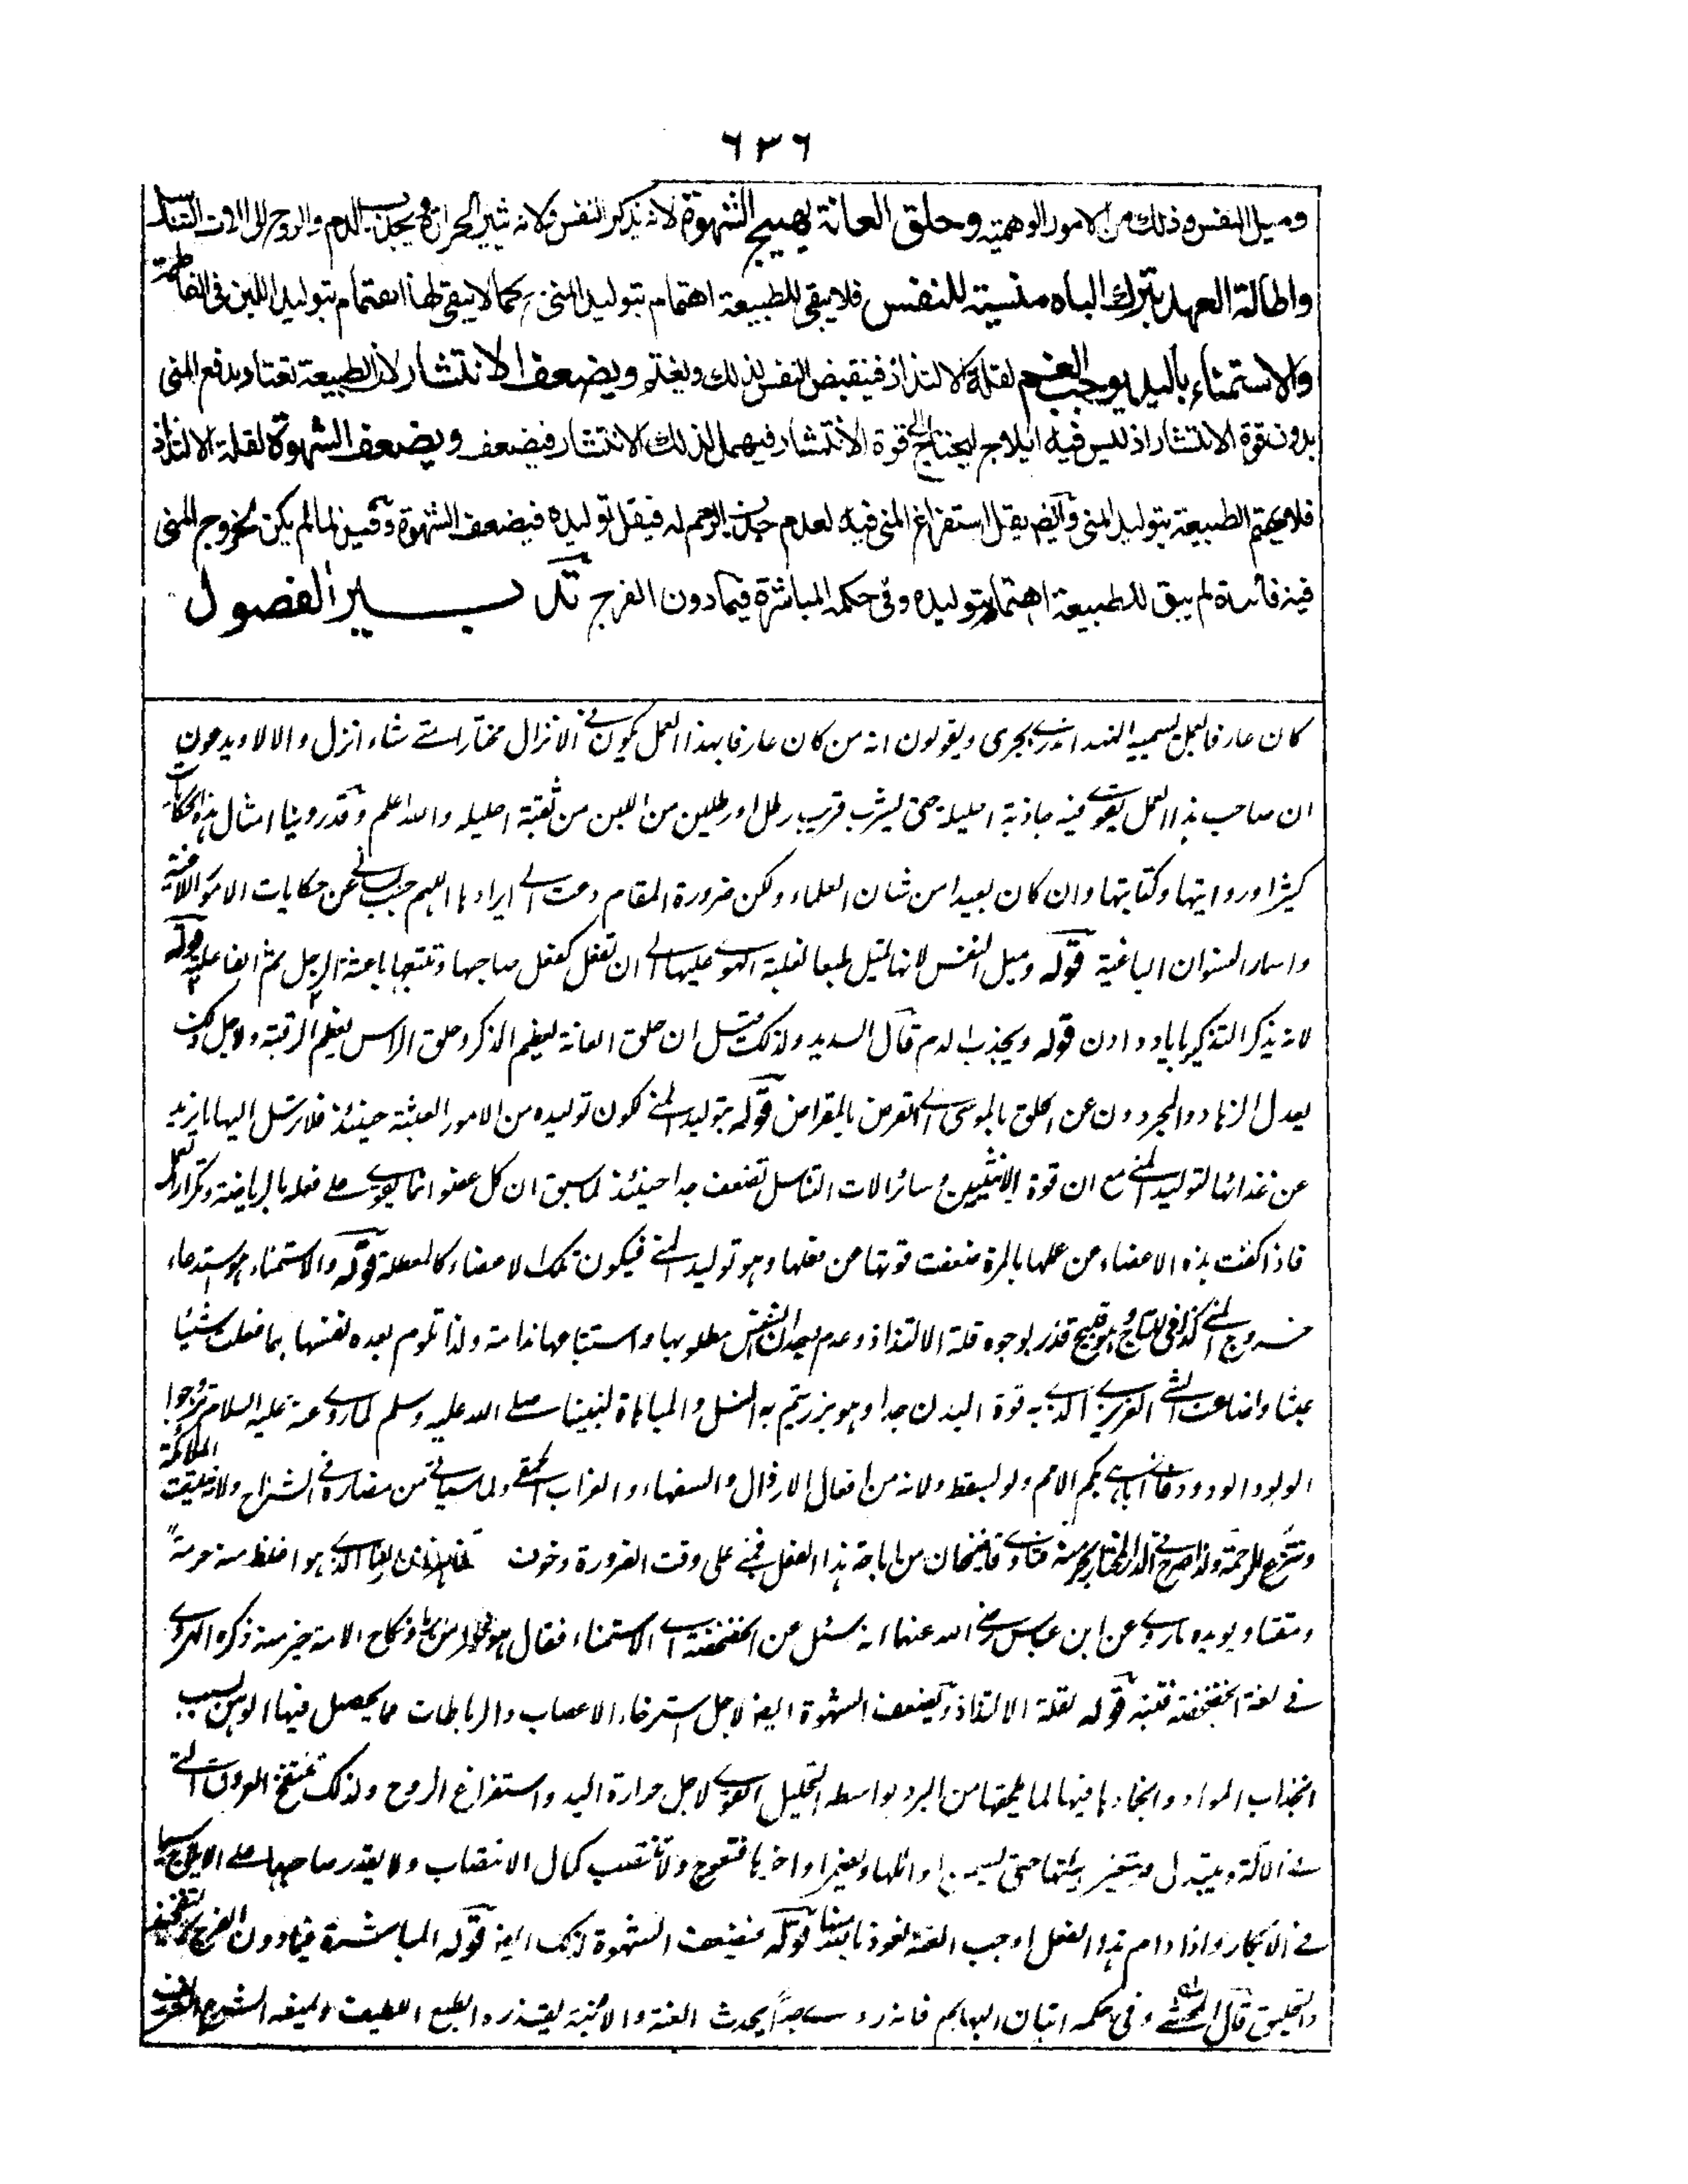 ٦٣٦
وميل النفس وذلك من الامور الوهمية وحلق العانة يهيج الشهوة لانه يذكر النفس ولانه يثير الحرارة ويجذب الدم والروح الى الات التناسل
واطالة العهد بترك الباه منسية للنفس فلا يبقى للطبيعة اهتمام بتوليد المنى كما لا يبقى لها اهتمام بتوليد اللبن فى الفاطمة
والاستمناء باليد يوجب الغم لقلة الالتذاذ فينقبض النفس لذلك ويغتم ويضعف الانتشار لان الطبيعة تعتاد بدفع المنى
بدون قوة الانتشار اذ ليس فيه ايلاج ليحتاج الى قوة الانتشار فيهمل لذلك الانتشار فيضعف ويضعف الشهوة لقلة الالتذاذ
فلا يهتم الطبيعة بتوليد المنى وايضا يقل استفراغ المنى فيه لعدم جذب الرحم له فيقل توليده فيضعف الشهوة لما لم يكن لخروج المنى
فيه فائدة لم يبق للطبيعة اهتمام بتوليده وفى حكمه المباشرة فيما دون الفرج تدبير الفصول
كان عارفا بعمل يسميه الهند بجرى ويقولون انه من كان عارفا بهذا العمل يكون فى الانزال مختارا متے شاء انزل والا لا ويدعون
ان صاحب هذا العمل يقوے فيه جاذبة احليله حتى يشرب قريب رطل او رطلين من اللبن من ثقبة احليله والله اعلم وقد روينا امثال هذه الحكايات
كثيرا وروايتها وكتابتها وان كان بعيدا من شان العلماء ولكن ضرورة المقام دعت الے ايرادها اللهم جنب لسانى عن حكايات الامور
واسمار النسوان الباغية قوله وميل النفس لانها تميل طبعا لغلبة الهوے عليها الے ان تفعل كفعل صاحبها قوله
لانه يذكر التذكير ياد دادن قوله ويجذب الدم قال السديد ولذلك قيل ان حلق العانة يعظم الذكر وحلق الراس يعظم الرقبة ولاجل ذلك
يعدل الزهاد والمجردون عن الحلق بالموسى الے القرض بالمقراض قوله بتوليد المنے لكون توليده من الامور العبثة حينئذ فلا ترسل اليها ما يزيد
عن غذائها لتوليد المنے مع ان قوة الانثيين وسائر الات التناسل تضعف جدا حينئذ لما سبق ان كل عضو انما يقوے على فعله بالرياضة وتكرار العمل
فاذا كفت هذه الاعضاء عن عملها بالمرة ضعفت قوتها عن فعلها وهو توليد المنے فيكون تلك الاعضاء كالمعطلة قوله والاستمناء هو استدعاء
خروج المنے كذا فى التاج وهو قبيح قذر لوجوه قلة الالتذاذ وعدم وجدان النفس مطلوبها واستتباعها ندامة ولذا تلوم بعده نفسها بما فعلت شيئا
عبثا واضاعت الشئ العزيز الذے به قوة البدن جدا وهو بزر يتم به النسل والمباهاة لنبينا صلے الله عليه وسلم لما روے عنه عليه السلام تزوجوا
الولود الودود فانے اباهى بكم الامم ولو بسقط ولانه من افعال الارذال والسفهاء والعزاب الحمقے ولما سياتى من مضاره فى الشراح
ولذا صرح فى الدر المختار فتاوے قاضيخان من اباحة هذا الفعل فهے على وقت الضرورة وخوف الذے هو اغلظ منه حرمة
ومقتا ويويده ماروے عن ابن عباس رضے الله عنهما انه سئل عن الخضخضة اے الاستمناء فقال هو خير من الزنا ونكاح الامة خير منه ذكره الهروے
فے لغة الخضخضة فتنبه قوله لقلة الالتذاذ ويضعف الشهوة ايضا لاجل استرخاء الاعصاب والرباطات مما يحصل فيها الوهن بسبب
انجذاب المواد وانحدارها فيها لما يلحقها من البرد بواسطة التحليل القوے لاجل حرارة اليد واستفراغ الروح ولذلك تنتفخ العروق التے
فے الآلة ويتبدل ويتغير هيئتها حتى يسمن اوائلها ويصغر اواخرها فتعوج ولا تنتصب كمال الانتصاب ولا يقدر صاحبها على الايلاج سيما
فے الابكار واذا دام هذا الفعل اوجب العنة نعوذ بالله منها قوله فيضعف الشهوة لذلك ايضا قوله المباشرة فيما دون الفرج كالتفخيذ
والتحليق قال المحشے وفى حكمه اتيان البهايم فانه ردے جدا يحدث العنة والابنة يتقذره الطبع اللطيف